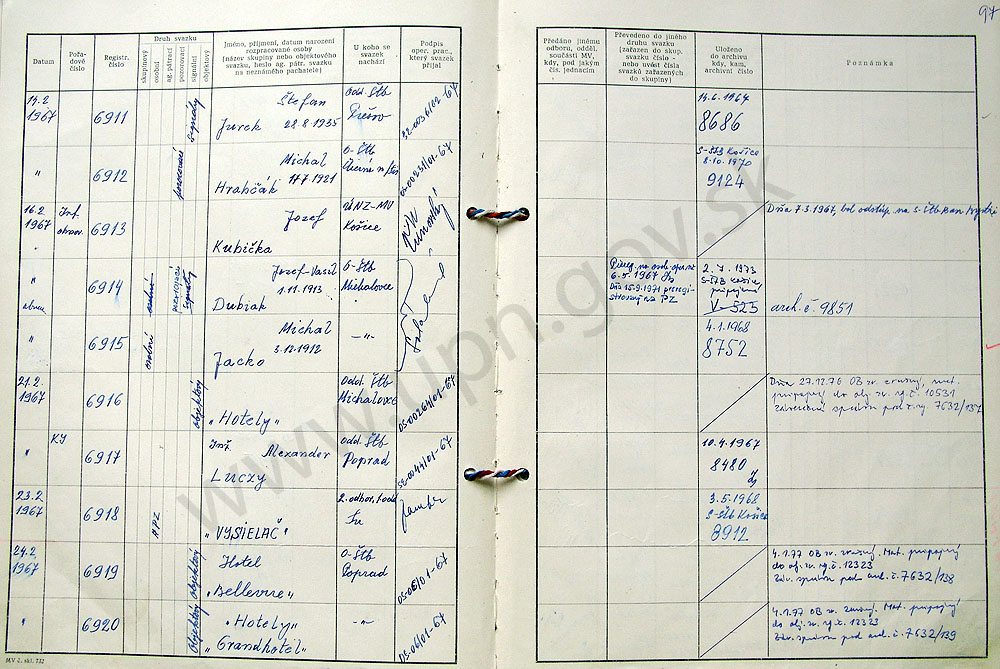 97
Datum
Pořadové číslo
Registr. číslo
Druh svazku
skupinový
osobní
ag.-pátrací
pozorovací
signální
objektový
Jméno, příjmení, datum narození
rozpracované osoby
(název skupiny nebo objektového
svazku, heslo ag. pátr. svazku
na neznámého pachatele)
U koho se
svazek
nachází
Podpis
oper. prac.,
který svazek
přijal
Předáno jinému
odboru, odděl.
součásti MV,
kdy, pod jakým
čís. jednacím
Převedeno do jiného
druhu svazku
(zařazen do skup.
svazku číslo -
nebo uvást čísla
svazků zařazených
do skupiny)
Uloženo
do archivu
kdy, kam,
archivní číslo
Poznámka
14.2.
1967
6911
signálny
Štefan
Jurek 28.8.1935
Odd. Štb
Prešov
14.6.1967
8686
"
6912
Michal
Hrabčák 17.7.1921
O-Štb
S-ŠtB Košice
8.10.1970
9124
16.2.
1967
6913
Jozef
Kubička
Košice
Dňa 7.3.1967, bol odstúp. na S-Štb
"
6914
osobný
signálny
Jozef-Vasil
Dubiak 1.11.1913
O-Štb
Michalovce
6.5.1967
Dňa 15.9.1971 preregistrovaný na PZ
2.7.1973
S-ŠtB Košice,
V-523
arch. č. 9851
"
6915
osobný
Michal
Jacko 3.12.1912
-"-
4.1.1968
8752
21.2.
1967
6916
objektový
"Hotely"
Odd. Štb
Michalovce
Dňa 27.12.76 OB zv. zrušený, mat.
pripojený do obj. zv. rg. č. 10531
7632/137
"
KY
6917
Inž.
Alexander
Luczy
Odd. Štb
Poprad
10.4.1967
8480
23.2.
1967
6918
"VYSIELAČ"
2. odbor,
3.5.1968
S-Štb Košice
8912
24.2.
1967
6919
objektový
Hotel
"Bellevue"
O-Štb
Poprad
OS-06/01-67
4.1.77 OB zv. zrušený. Mat. pripojený
do obj. zv. rg. č. 12323
Záv. správa pod arch. č. 7632/138
"
6920
Objektový
"Hotely"
"Grandhotel"
-"-
OS-06/01-67
4.1.77 OB zv. zrušený. Mat. pripojený
do obj. zv. rg. č. 12323
Záv. správa pod arch. č. 7632/139
MV č. skl. 732
www.upn.gov.sk